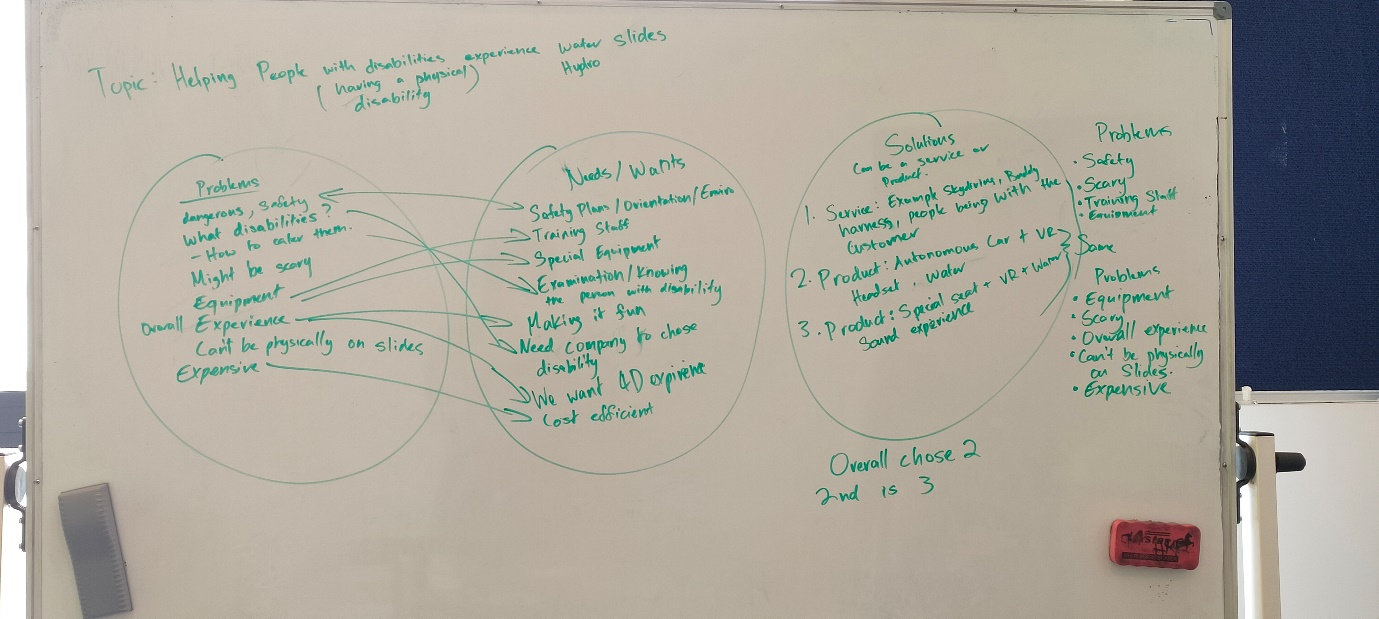 Topic: Helping People with disabilities experience water slides
(having a physical) Hydro
disability
Problems
dangerous, Safety
What disabilities?
- How to cater them.
Might be scary
Equipment
Overall Experience
Can't be physically on slides
Expensive
Needs/Wants
Safety Plans/Orientation/Enviro
Training Staff
Special Equipment
Examination/Knowing
the person with disability
Making it fun
Need company to chose
disability
We want 4D expirence
Cost efficient
Solutions
Can be a service or
Product.
1. Service: Example Skydiving, Buddy
harness, people being with the
Customer
2. Product: Autonomous Car + VR
Headset, water
3. Product: Special seat + VR + Water
Sound experience
Problems
• Safety
• Scary
• Training Staff
• Equipment
Same
Problems
• Equipment
• Scary
• Overall experience
• Can't be physically
on Slides.
• Expensive
Overall chose 2
2nd is 3